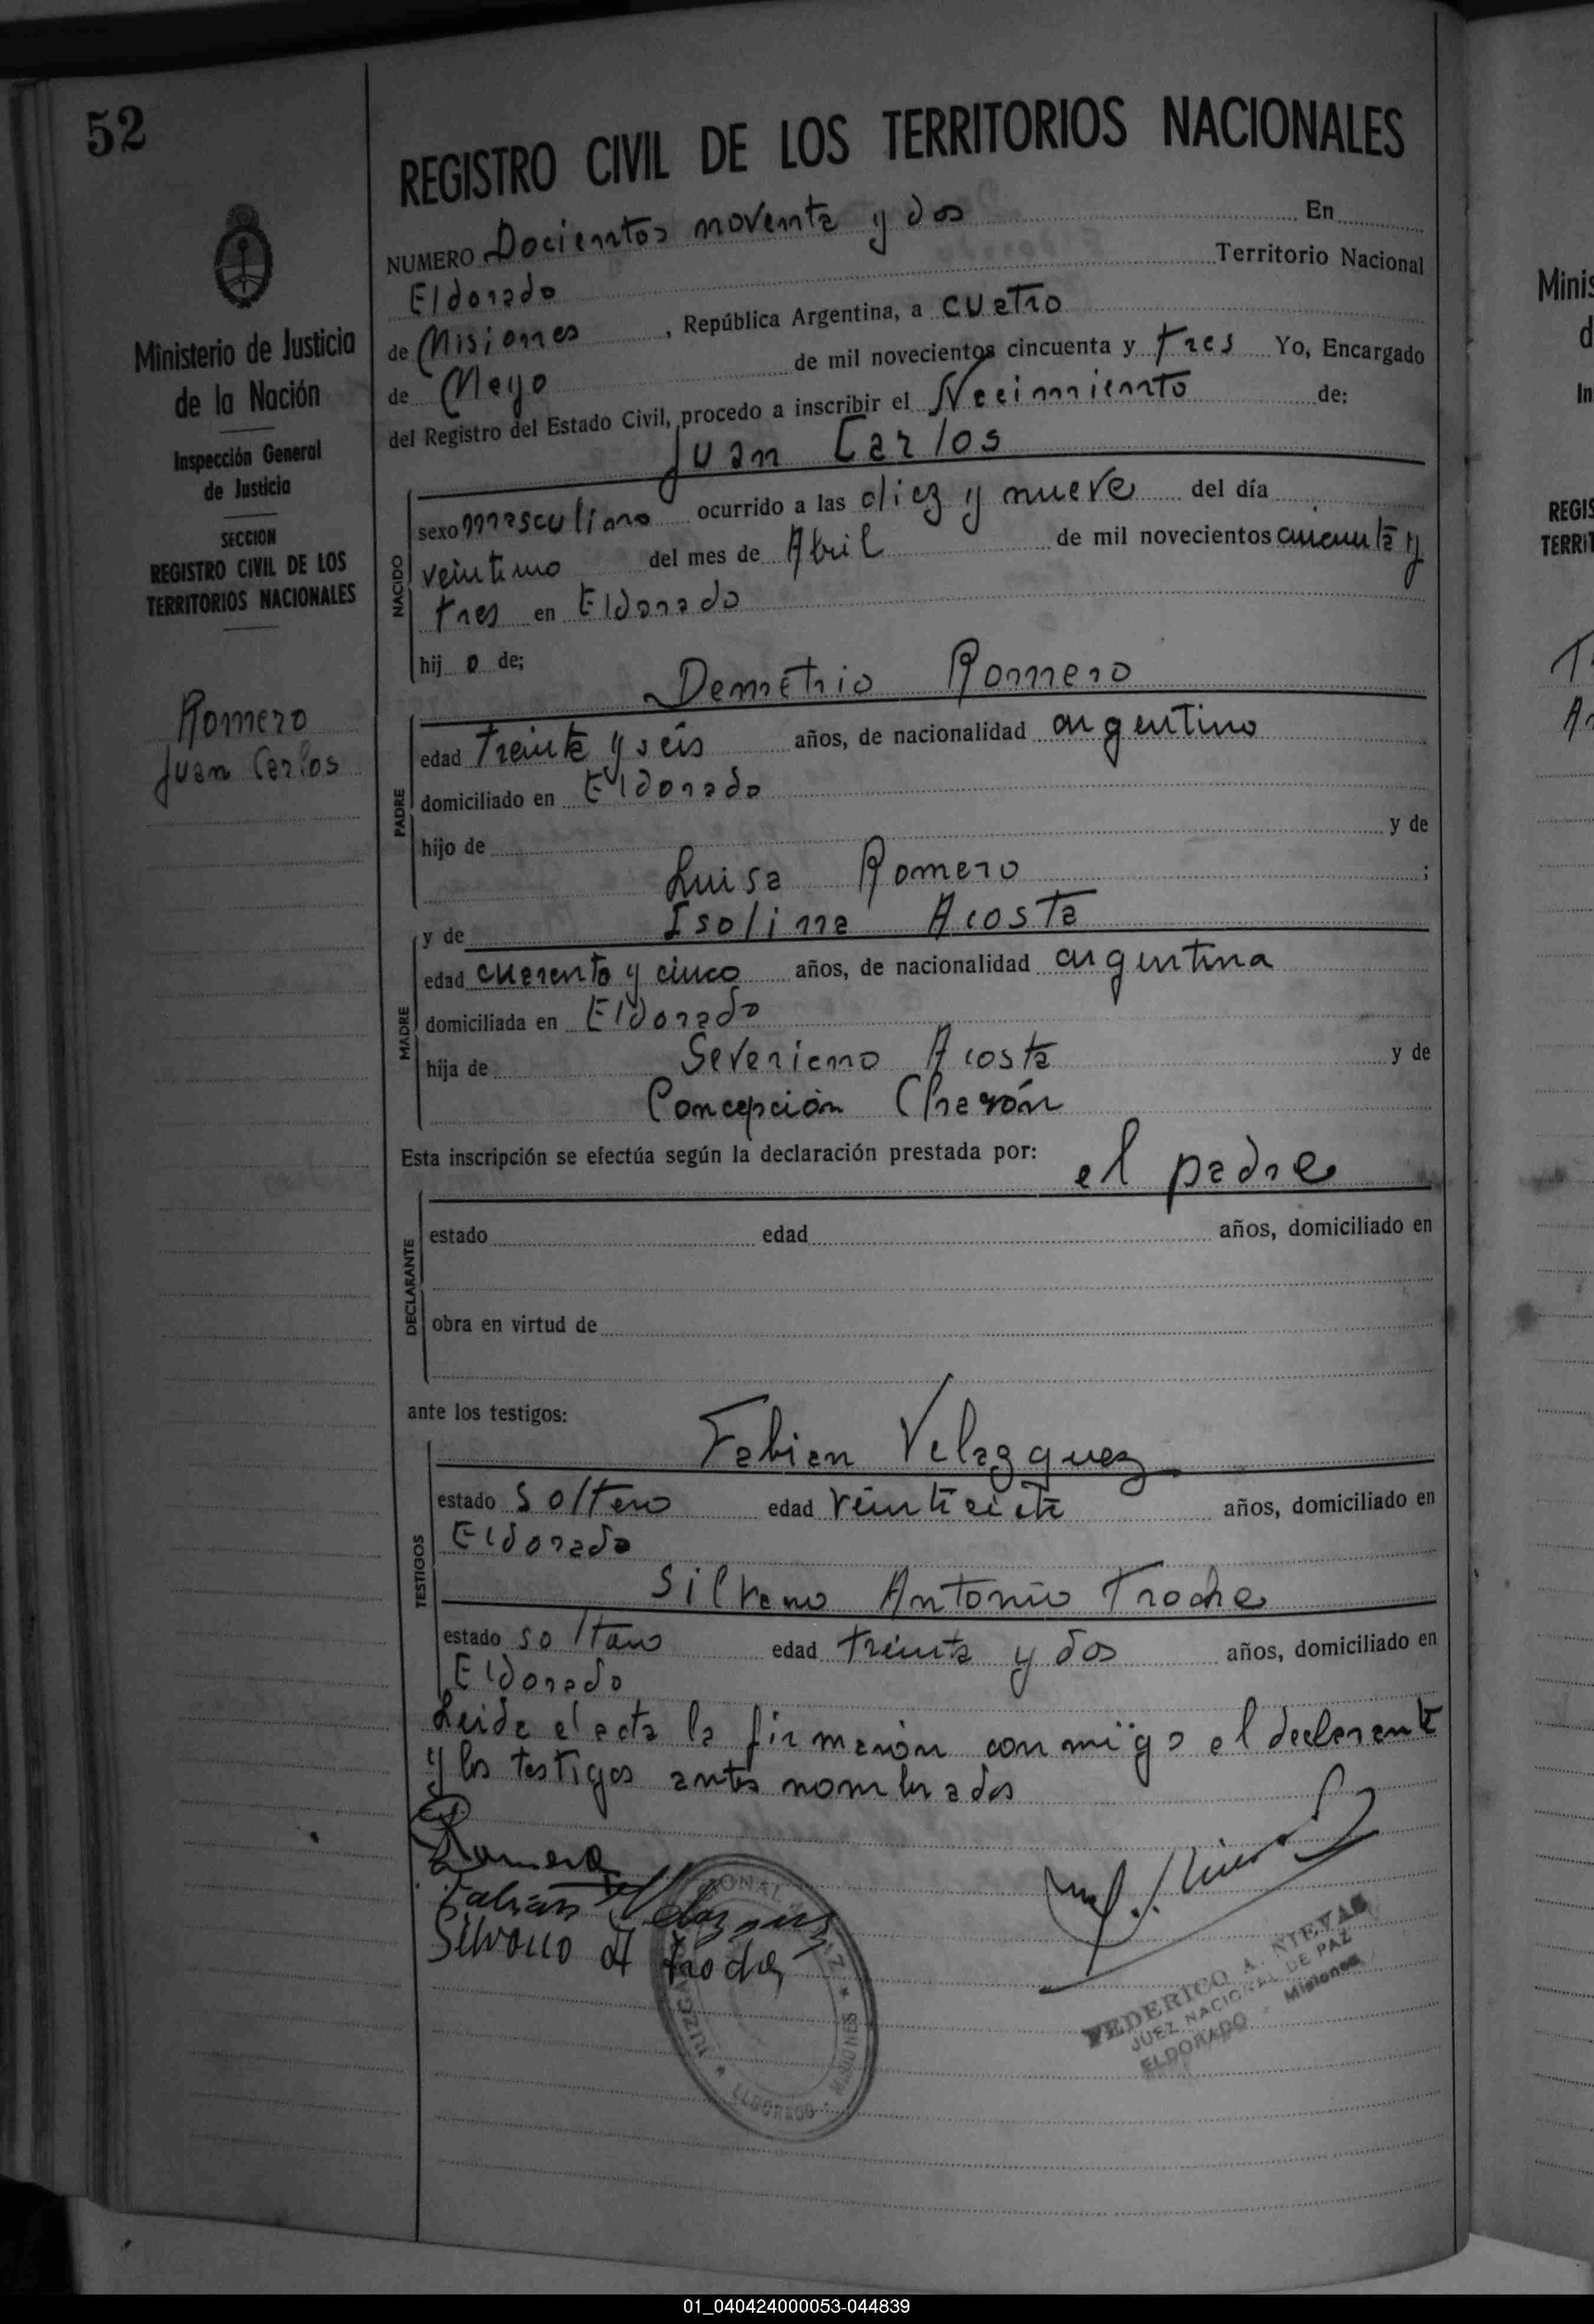 52
REGISTRO CIVIL DE LOS TERRITORIOS NACIONALES
NUMERO Docientos noventa y dos En
Eldorado Territorio Nacional
de Misiones, República Argentina, a cuatro
de Mayo de mil novecientos cincuenta y tres Yo, Encargado
del Registro del Estado Civil, procedo a inscribir el Nacimiento de:
Juan Carlos
Ministerio de Justicia
de la Nación
Inspección General
de Justicia
SECCION
REGISTRO CIVIL DE LOS
TERRITORIOS NACIONALES
Romero
Juan Carlos
NACIDO
sexo masculino ocurrido a las diez y nueve del día
veintiuno del mes de Abril de mil novecientos cincuenta y
tres en Eldorado
hij o de;
Demetrio Romero
PADRE
edad treinta y seis años, de nacionalidad argentino
domiciliado en Eldorado
hijo de y de
Luisa Romero ;
y de Isolina Acosta
MADRE
edad cuarenta y cinco años, de nacionalidad argentina
domiciliada en Eldorado
hija de Severiano Acosta y de
Concepción
Esta inscripción se efectúa según la declaración prestada por: el padre
DECLARANTE
estado edad años, domiciliado en
obra en virtud de
ante los testigos:
Fabian Velazquez
TESTIGOS
estado soltero edad veintisiete años, domiciliado en
Eldorado
Silvano Antonio Troche
estado soltero edad treinta y dos años, domiciliado en
Eldorado
Leida el acta la firmaron conmigo el declarante
y los testigos antes nombrados
Romero
Fabian Velazquez
Silvano A Troche
JUZGADO NACIONAL PAZ
ELDORADO - MISIONES
FEDERICO A. NIEVAS
JUEZ NACIONAL DE PAZ
ELDORADO - Misiones
Minis
d
In
REGIS
TERRIT
01_040424000053-044839